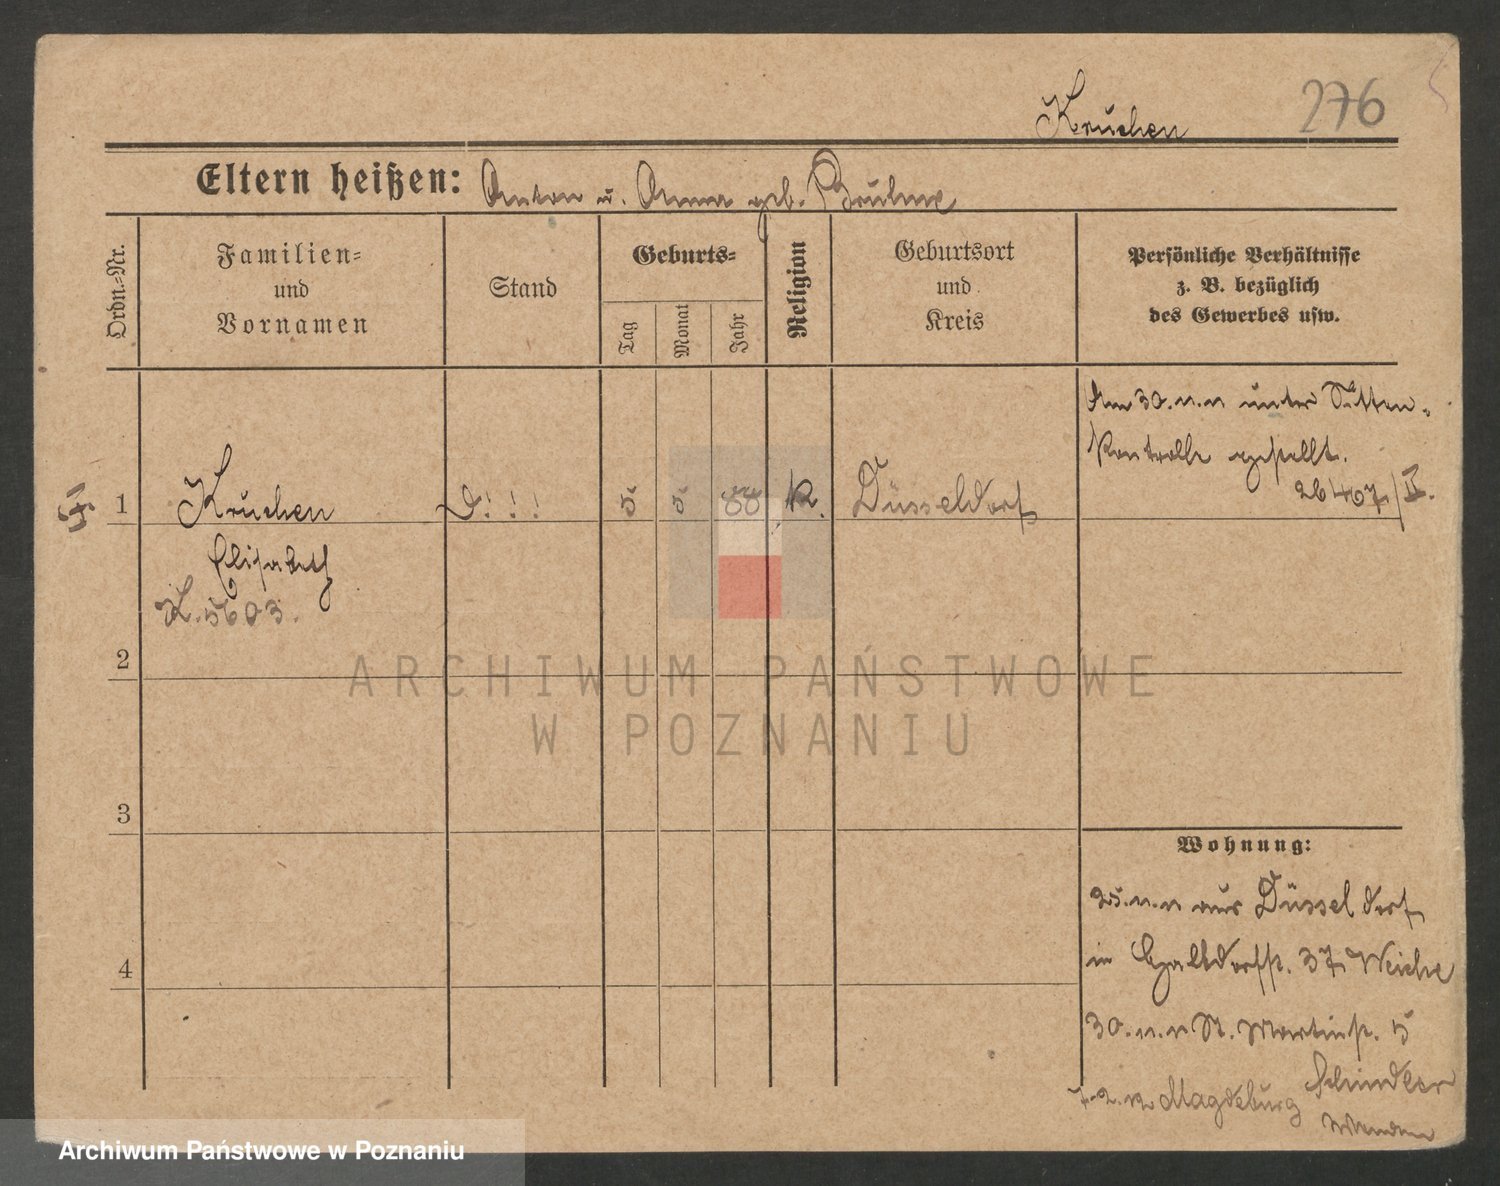 Kruchen 276
Eltern heißen: Anton u. Anna geb.
Ordn.-Nr.
Familien-
und
Vornamen
Stand
Geburts-
Tag
Monat
Jahr
Religion
Geburtsort
und
Kreis
Persönliche Verhältnisse
z. B. bezüglich
des Gewerbes usw.
Am 30.11.11 unter Sitten-
kontrolle gestellt.
26467/II.
1 Kruchen D!!! 5. 5. 88 K. Düsseldorf
Elisabeth
K. 5603.
2
3
4
Wohnung:
25.11.11 aus Düsseldorf
in 37
30.11.11 St. Martinstr. 5
Schindler
7.2.12 Magdeburg
ARCHIWUM PAŃSTWOWE
W POZNANIU
Archiwum Państwowe w Poznaniu